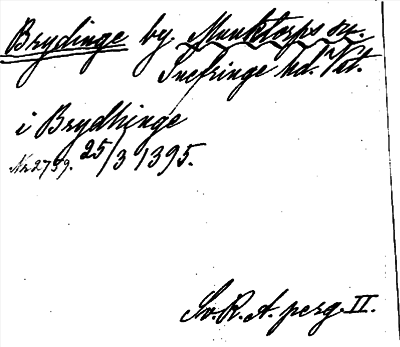 Brydinge by. Munktorps sn.
Snefringe hd. Vstm.
i Brydhinge
Nr 2759. 25/3 1395.
Sv. R. A. perg. II.